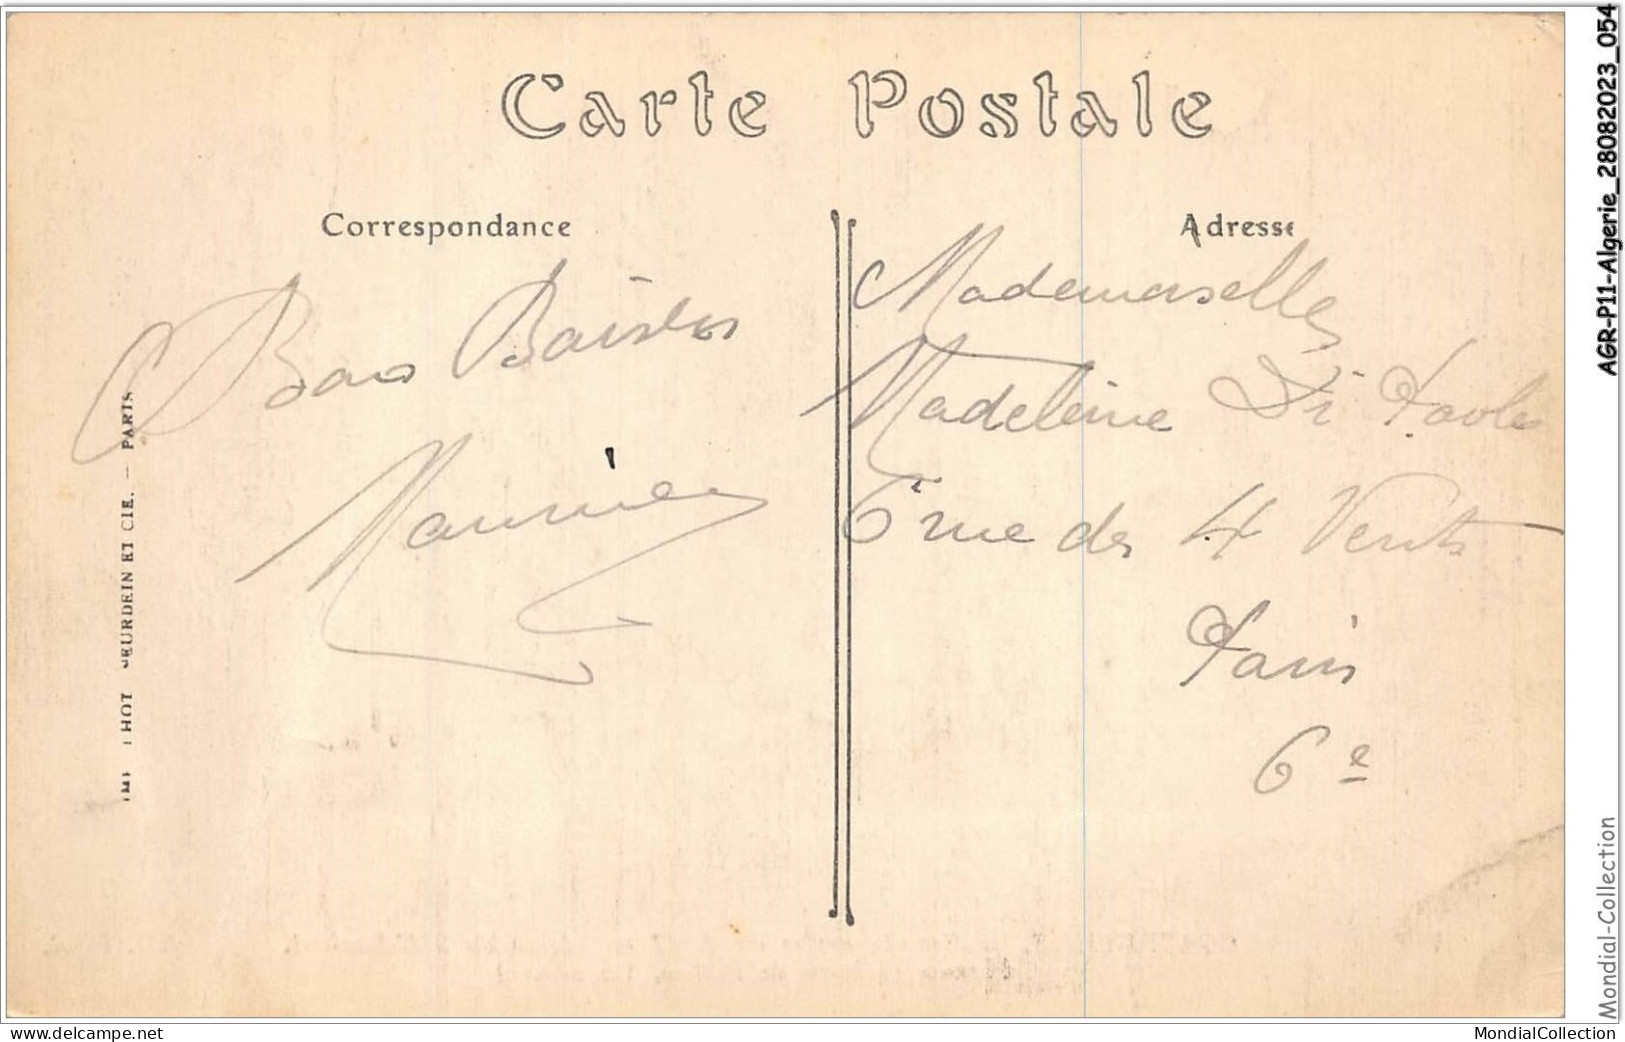 Carte Postale
Correspondance
Bons Baisers
Maurice
Adresse
Mademoiselle
Madeleine Di Paola
6 rue des 4 Vents
Paris
6e
PHOT. NEURDEIN ET CIE. — PARIS
AGR-P11-Algerie_28082023_054
Mondial-Collection
www.delcampe.net
MondialCollection